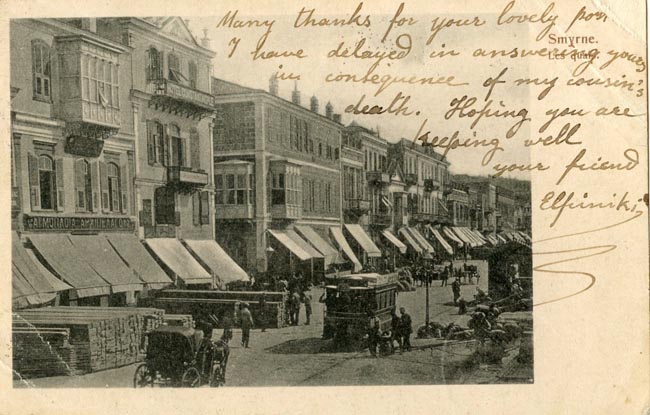 Many thanks for your lovely
I have delayed in answering yours
in consequence of my cousin's
death. Hoping you are
keeping well
your friend
Elpiniki
Smyrne.
Les quais.